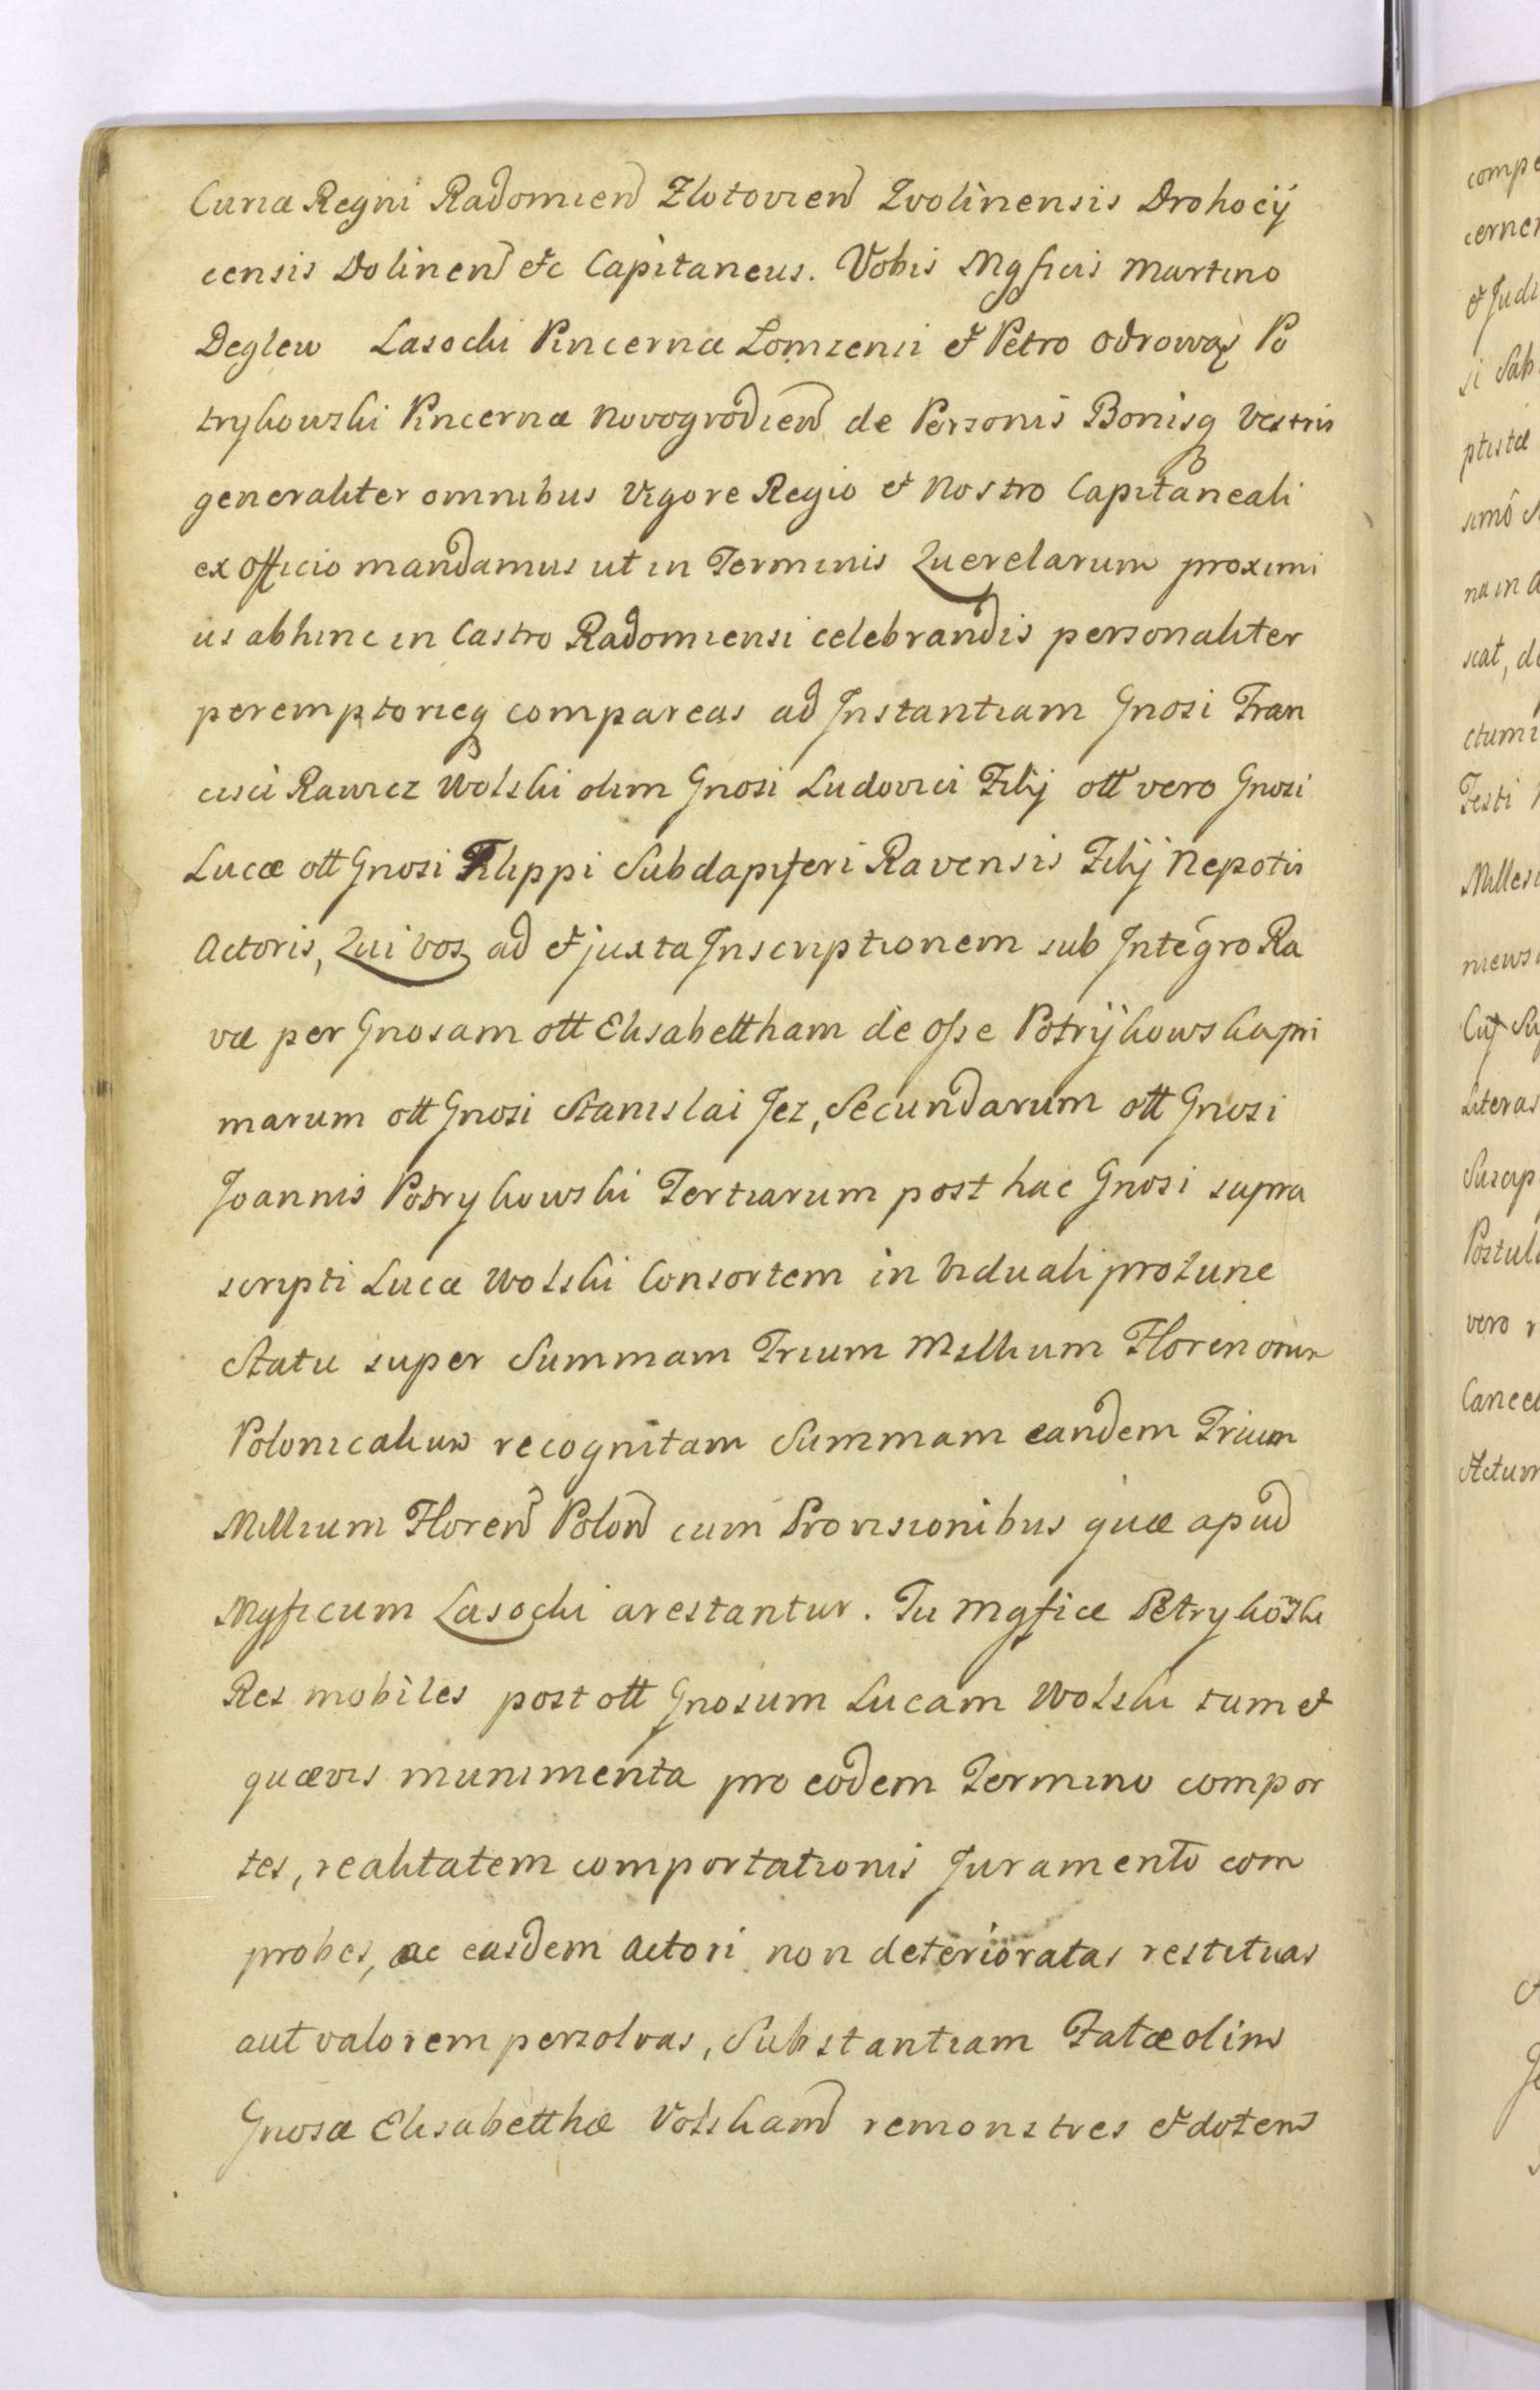 Curiæ Regni Radomien Zlotovien Zvolinensis Drohocij
censis Dolinen etc Capitaneus. Vobis Mgficis Martino
Deglew Lasocki Pincernæ Lomzensi et Petro Odrowąz Po
trykowski Pincernæ Novogrodien de Personis Bonisq Vestris
generaliter omnibus Vigore Regio et Nostro Capitaneali
ex Officio mandamus ut in Terminis Querelarum proximi
us abhinc in Castro Radomiensi celebrandis personaliter
peremptorieq compareas ad Instantiam Gnosi Fran
cisci Rawicz Wolski olim Gnosi Ludovici Filij ott vero Gnosi
Lucæ ott Gnosi Filippi Subdapiferi Ravensis Filij Nepotis
Actoris, Qui vos ad et juxta Inscriptionem sub Integro Ra
væ per Gnosam ott Elisabettham de Osse Potrijkowska pri
marum ott Gnosi Stanislai Jez, Secundarum ott Gnosi
Joannis Potrykowski Tertiarum post hac Gnosi supra
scripti Lucæ Wolski Consortem in Viduali protunc
Statu super Summam Trium Millium Florenorum
Polonicalium recognitam Summam eandem Trium
Millium Floren Polon cum Provisionibus quæ apud
Mgficum Lasocki arestantur. Tu Mgfice Petrykowski
Res mobiles post ott Gnosum Lucam Wolski tum et
quævis munimenta pro eodem Termino compor
tes, realitatem comportationis Juramento com
probes, ac easdem Actori non deterioratas restituas
aut valorem persolvas, Substantiam Fatæ olim
Gnosæ Elisabetthæ Volskam remonstres et dotem
comp
cerner
et Judi
si Sab
ptistæ
simô
na in
scat, d
ctum
Testi
Milles
niews
Cuj Su
Literas
Suscip
Postul
vero
Cancel
Actum